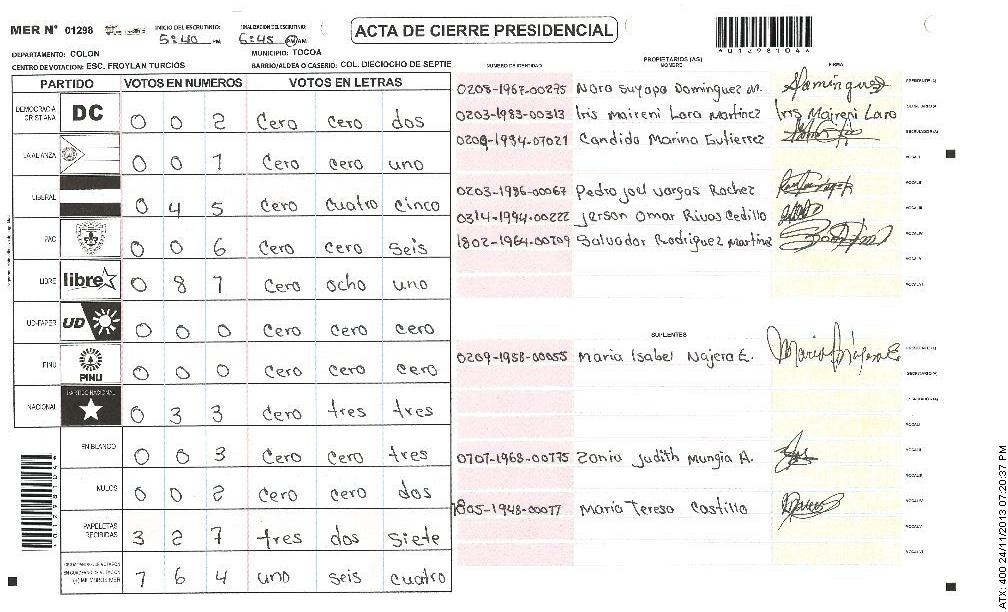 MER Nº 01298
INICIO DEL ESCRUTINIO: 5:40 PM
FINALIZACION DEL ESCRUTINIO: 6:45 PM AM
ACTA DE CIERRE PRESIDENCIAL
01298104
DEPARTAMENTO: COLON
MUNICIPIO: TOCOA
CENTRO DE VOTACION: ESC. FROYLAN TURCIOS
BARRIO/ALDEA O CASERIO: COL. DIECIOCHO DE SEPTIE
PARTIDO VOTOS EN NUMEROS VOTOS EN LETRAS
DEMOCRACIA CRISTIANA DC 0 0 2 Cero cero dos
LA ALIANZA 0 0 1 Cero cero uno
LIBERAL 0 4 5 Cero cuatro cinco
PAC 0 0 6 Cero cero seis
LIBRE libre 0 8 1 Cero ocho uno
UD-FAPER UD 0 0 0 Cero cero cero
PINU PINU 0 0 0 Cero cero cero
NACIONAL PARTIDO NACIONAL 0 3 3 Cero tres tres
EN BLANCO 0 0 3 Cero cero tres
NULOS 0 0 2 Cero cero dos
PAPELETAS RECIBIDAS 3 2 7 tres dos siete
1 6 4 uno seis cuatro
PROPIETARIOS (AS)
NUMERO DE IDENTIDAD NOMBRE FIRMA
0208-1967-00275 Nora Suyapa Dominguez M. Dominguez PRESIDENTE(A)
0203-1983-00313 Iris Maireni Lara Martinez Iris Maireni Lara SECRETARIO(A)
0209-1994-01021 Candida Marina Gutierrez ESCRUTADOR(A)
VOCAL I
0203-1986-00067 Pedro Joel Vargas Rochez VOCAL II
0314-1994-00222 Jerson Omar Rivas Cedillo VOCAL III
1802-1964-00109 Salvador Rodriguez Martinez VOCAL IV
VOCAL V
VOCAL VI
SUPLENTES
0209-1958-00055 Maria Isabel Najera E. Maria I Najera E. PRESIDENTE(A)
SECRETARIO(A)
ESCRUTADOR(A)
VOCAL I
0707-1968-00175 Zonia Judith Mungia A. VOCAL II
VOCAL III
1805-1948-00077 Maria Teresa Castillo VOCAL IV
VOCAL V
VOCAL VI
01298104
ATX: 400 24/11/2013 07:20:37 PM